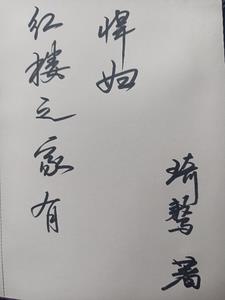 红楼之家有
悍妇
琦鹫著